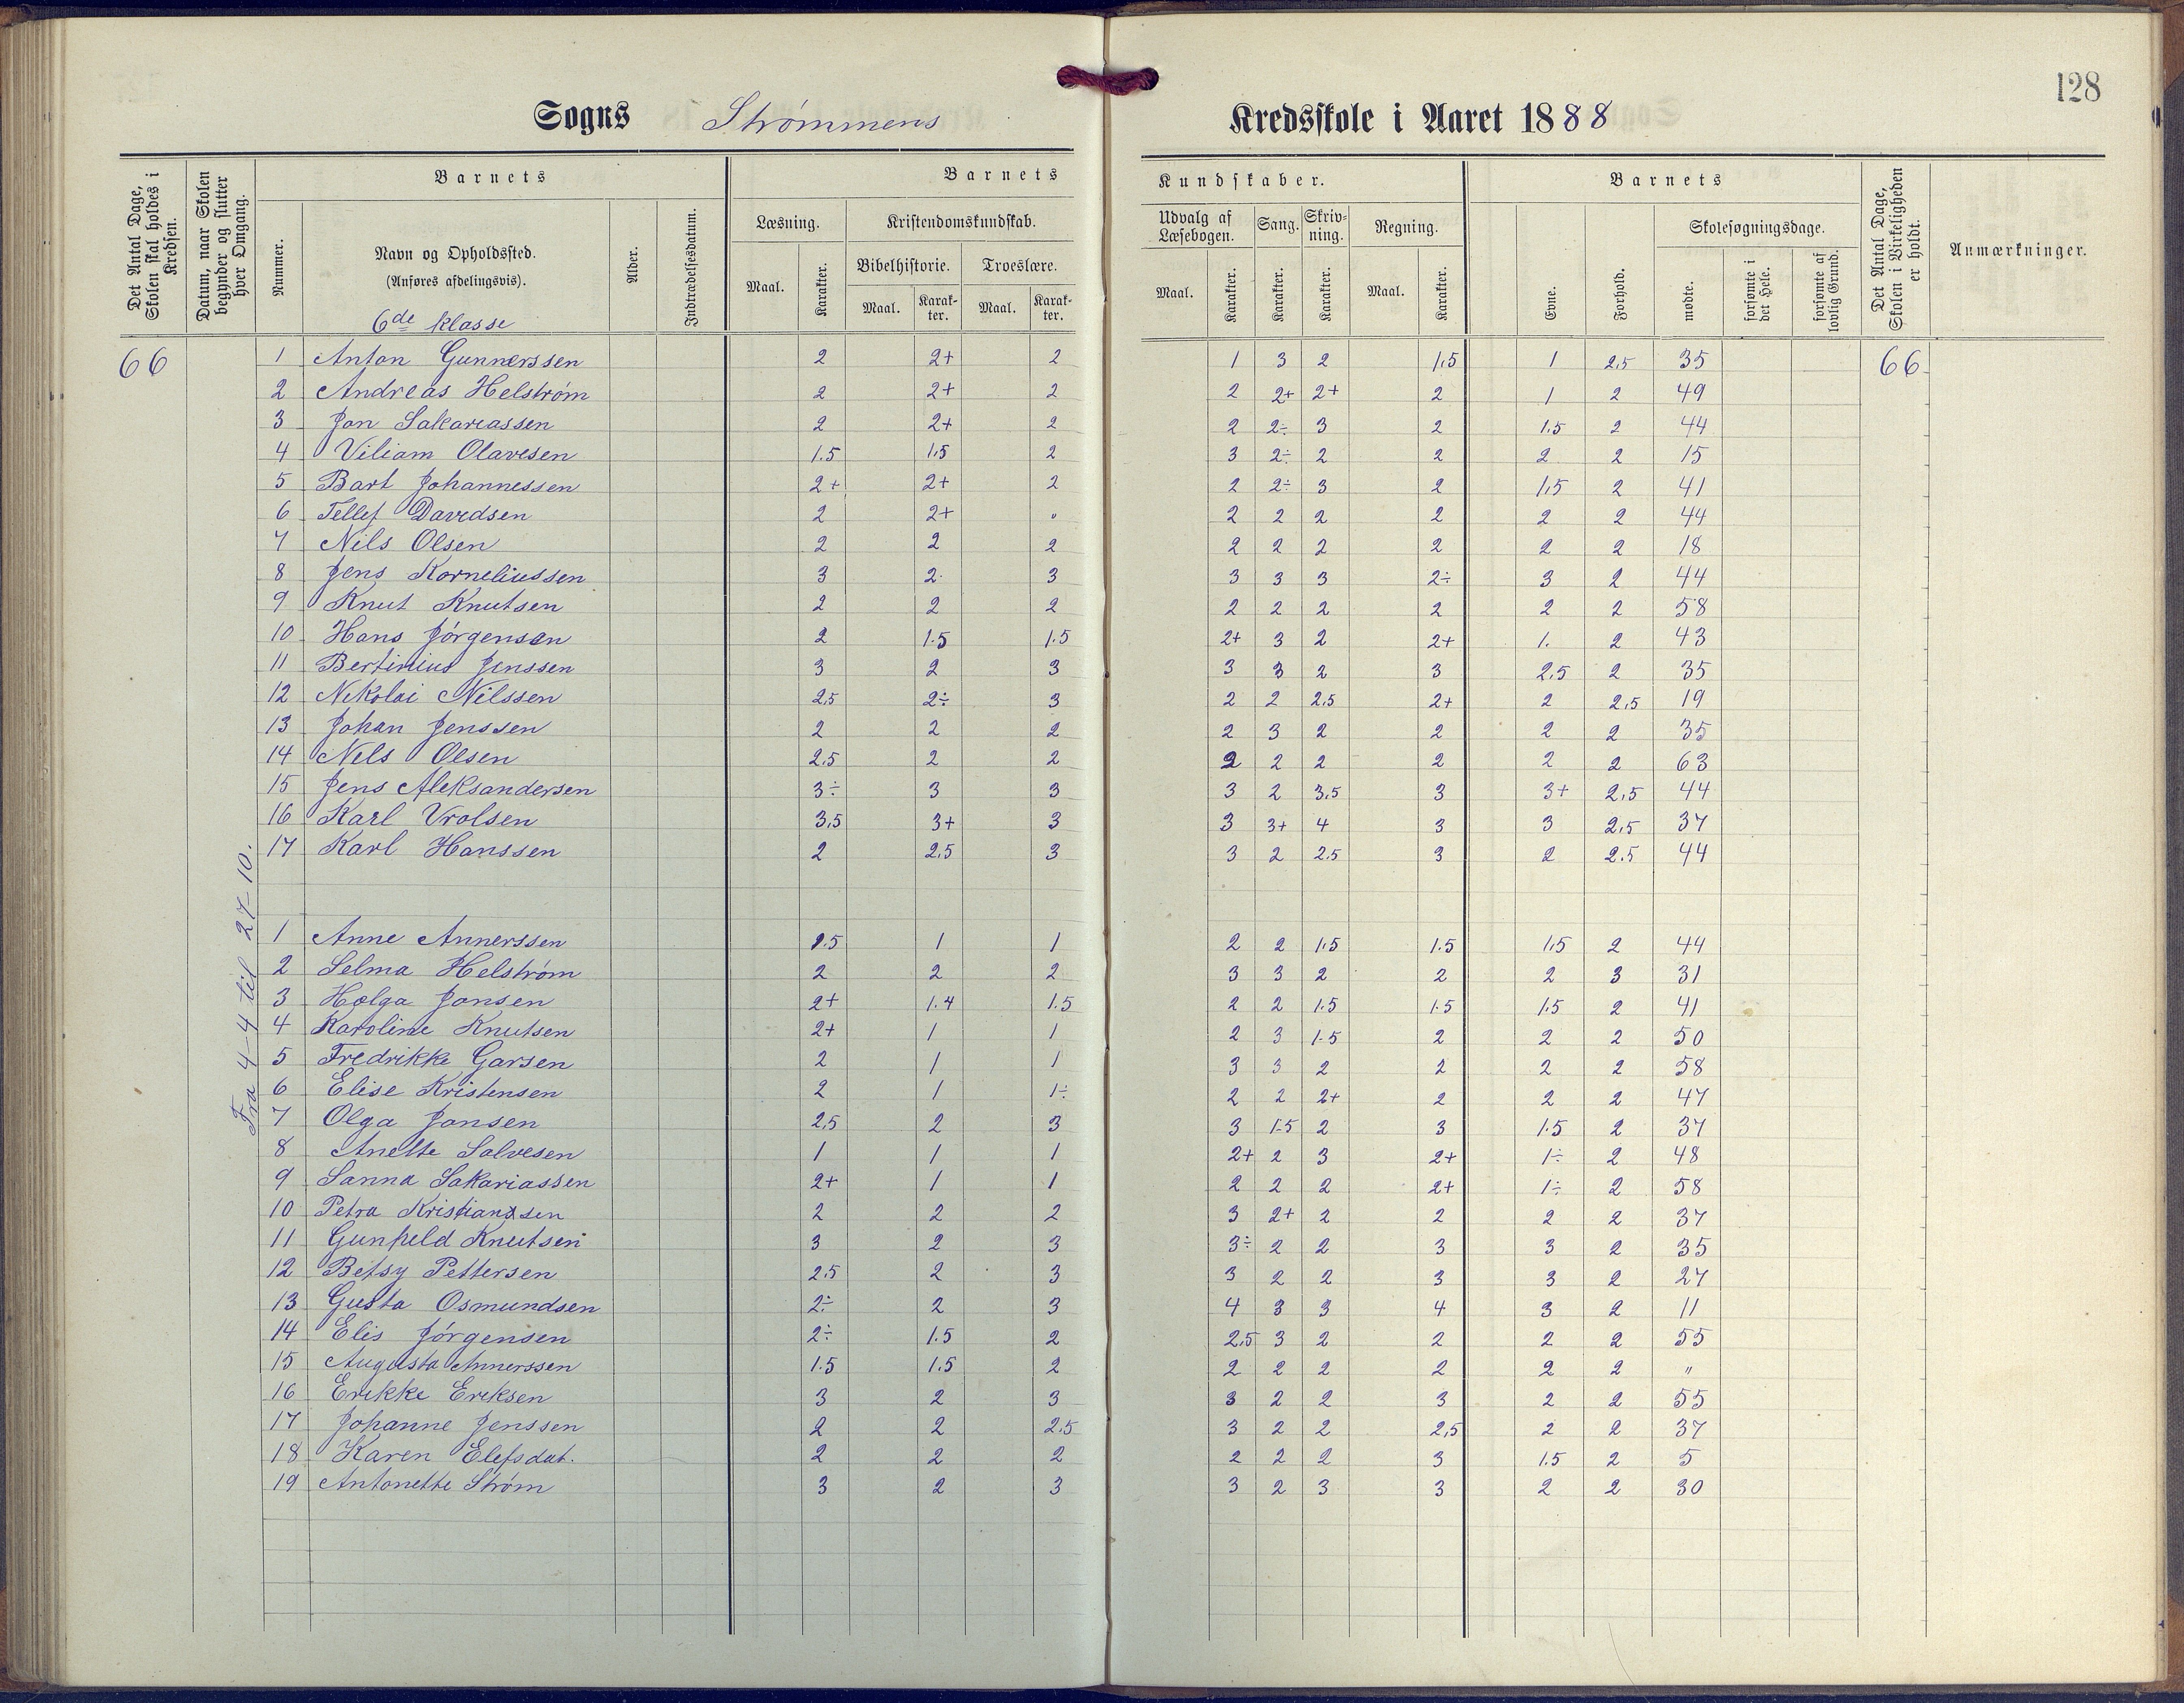 128
Sogns Strømmens Kredsskole i Aaret 1888
Det Antal Dage, Skolen skal holdes i Kredsen.
Datum, naar Skolen begynder og slutter hver Omgang.
Barnets
Nummer.
Navn og Opholdssted.
(Anføres afdelingsvis).
6de klasse
Alder.
Indtrædelsesdatum.
Barnets Kundskaber.
Læsning.
Maal. Karakter.
Kristendomskundskab.
Bibelhistorie. Troeslære.
Maal. Karakter. Maal. Karakter.
Udvalg af Læsebogen.
Maal. Karakter.
Sang.
Karakter.
Skrivning.
Karakter.
Regning.
Maal. Karakter.
Barnets
Evne. Forhold.
Skolesøgningsdage.
mødte. forsømte i det Hele. forsømte af lovlig Grund.
Det Antal Dage, Skolen i Virkeligheden er holdt.
Anmærkninger.
66 1 Anton Gunnerssen 2 2+ 2 1 3 2 1,5 1 2,5 35 66
2 Andreas Helstrøm 2 2+ 2 2 2+ 2+ 2 1 2 49
3 Jon Sakariassen 2 2+ 2 2 2÷ 3 2 1.5 2 44
4 Viliam Olavesen 1.5 1,5 2 3 2÷ 2 2 2 2 15
5 Bart Johannessen 2+ 2+ 2 2 2÷ 3 2 1,5 2 41
6 Tellef Davidsen 2 2+ " 2 2 2 2 2 2 44
7 Nils Olsen 2 2 2 2 2 2 2 2 2 18
8 Jens Korneliussen 3 2. 3 3 3 3 2÷ 3 2 44
9 Knut Knutsen 2 2 2 2 2 2 2 2 2 58
10 Hans Jørgensen 2 1.5 1.5 2+ 3 2 2+ 1. 2 43
11 Bertinius Jenssen 3 2 3 3 3 2 3 2.5 2 35
12 Nikolai Nilssen 2,5 2÷ 3 2 2 2,5 2+ 2 2,5 19
13 Johan Jenssen 2 2 2 2 3 2 2 2 2 35
14 Nels Olsen 2.5 2 2 2 2 2 2 2 2 63
15 Jens Aleksandersen 3÷ 3 3 3 2 3,5 3 3+ 2,5 44
16 Karl Vrolsen 3,5 3+ 3 3 3+ 4 3 3 2,5 37
17 Karl Hanssen 2 2,5 3 3 2 2.5 3 2 2.5 44
Fra 4-4 til 27-10.
1 Anne Annerssen 1.5 1 1 2 2 1,5 1.5 1,5 2 44
2 Selma Helstrøm 2 2 2 3 3 2 2 2 3 31
3 Holga Jonsen 2+ 1.4 1.5 2 2 1.5 1.5 1.5 2 41
4 Karoline Knutsen 2+ 1 1 2 3 1.5 2 2 2 50
5 Fredrikke Garsen 2 1 1 3 3 2 2 2 2 58
6 Elise Kristensen 2 1 1÷ 2 2 2+ 2 2 2 47
7 Olga Jonsen 2,5 2 3 3 1.5 2 3 1.5 2 37
8 Anette Salvesen 1 1 1 2+ 2 3 2+ 1÷ 2 48
9 Sanna Sakariassen 2+ 1 1 2 2 2 2+ 1÷ 2 58
10 Petra Kristianssen 2 2 2 3 2+ 2 2 2 2 37
11 Gunheld Knutsen 3 2 3 3÷ 2 2 3 3 2 35
12 Betsy Pettersen 2.5 2 3 3 2 2 3 3 2 27
13 Gusta Osmundsen 2÷ 2 3 4 3 3 4 3 2 11
14 Elis Jørgensen 2÷ 1.5 2 2,5 3 2 2 2 2 55
15 Augusta Annerssen 1.5 1.5 2 2 2 2 2 2 2 "
16 Erikke Eriksen 3 2 3 3 2 2 3 2 2 55
17 Johanne Jenssen 2 2 2.5 3 2 2 2,5 2 2 37
18 Karen Elefsdat. 2 2 2 2 2 2 3 1.5 2 5
19 Antonette Strøm 3 2 3 3 2 3 3 2 2 30